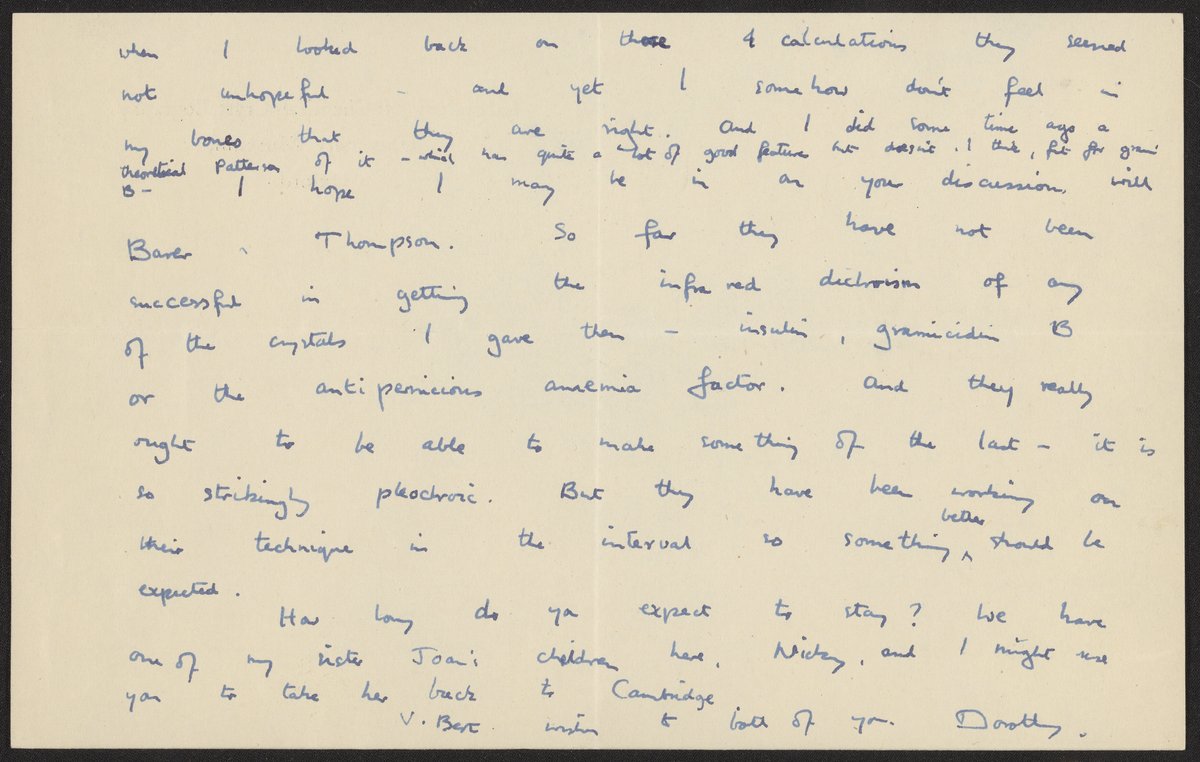 when I looked back on those 4 calculations they seemed
not unhopeful - and yet I somehow don't feel in
my bones that they are right. And I did some time ago a
theoretical Patterson of it - which has quite a lot of good features but doesn't, I think, fit for grami
B - I hope I may be in on your discussion with
Barer & Thompson. So far they have not been
successful in getting the infra red dichroism of any
of the crystals I gave them - insulin, gramicidin B
or the anti pernicious anaemia factor. And they really
ought to be able to make something of the last - it is
so strikingly pleochroic. But they have been working on
their technique in the interval so something better should be
expected.
How long do you expect to stay? We have
one of my sister Joan's children here, Nicky, and I might use
you to take her back to Cambridge
V. Best wishes to both of you. Dorothy.